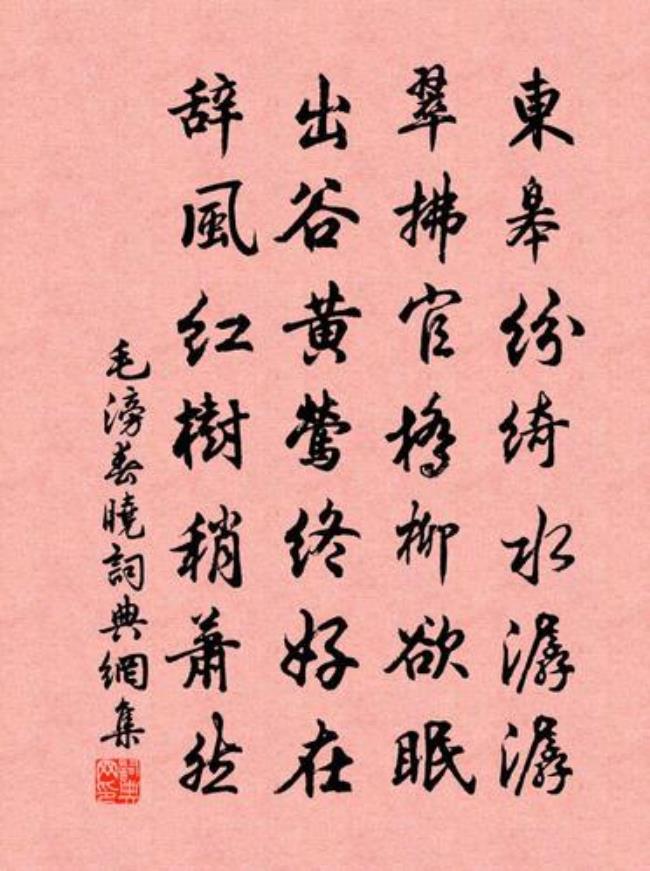 東皋紛綺水潺潺
翠拂官橋柳欲眠
出谷黄鶯終好在
辞風红樹稍蕭然
毛滂春曉詞典網集